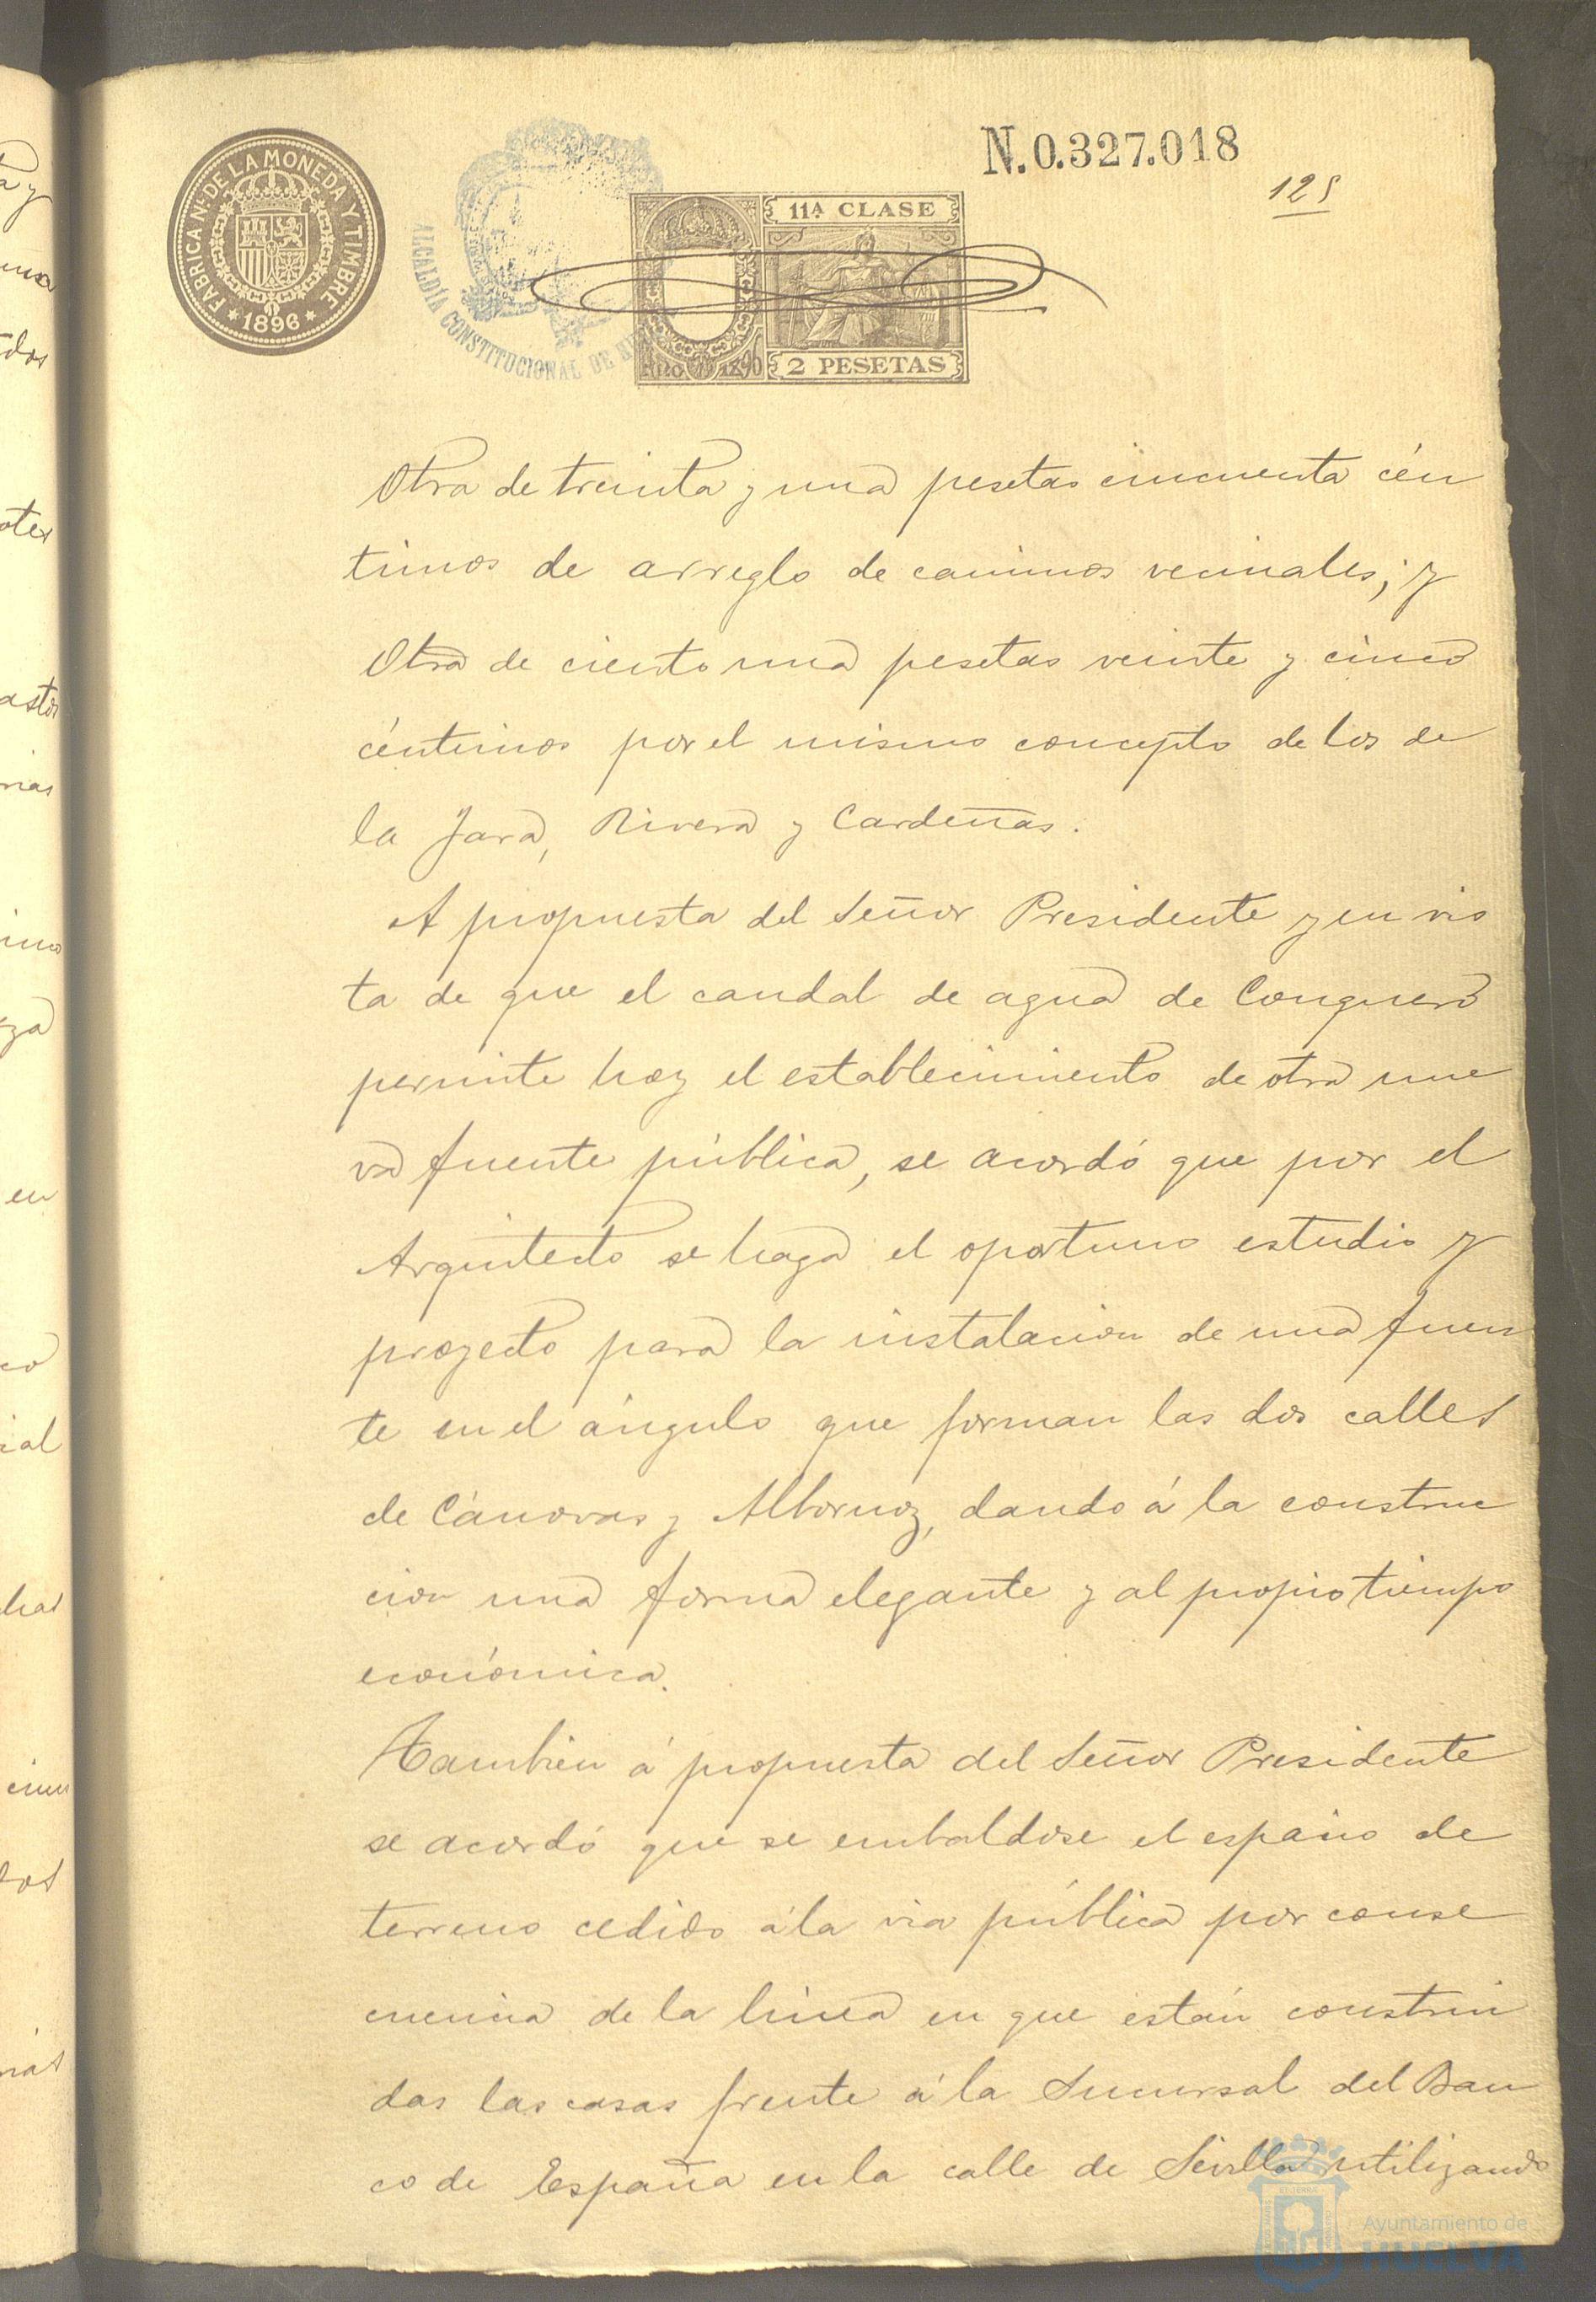 N.0.327.018
125
FABRICA Nl. DE LA MONEDA Y TIMBRE
* 1896 *
ALCALDÍA CONSTITUCIONAL DE
11ª CLASE
2 PESETAS
Otra de treinta y una pesetas cincuenta cén
timos de arreglo de caminos vecinales; y
Otra de ciento una pesetas veinte y cinco
céntimos por el mismo concepto de los de
la Jara, Rivera y Cardeñas.
A propuesta del Señor Presidente y en vis
ta de que el caudal de agua de Conquero
permite hoy el establecimiento de otra nue
va fuente pública, se acordó que por el
Arquitecto se haga el oportuno estudio y
proyecto para la instalacion de una fuen
te en el ángulo que forman las dos calles
de Cánovas y Albornoz, dando á la construc
cion una forma elegante y al propio tiempo
económica.
Tambien á propuesta del Señor Presidente
se acordó que se embaldose el espacio de
terreno cedido á la via pública por conse
cuencia de la linea en que están construi
das las casas frente á la Sucursal del Ban
co de España en la calle de Sevilla utilizando
Ayuntamiento de
HUELVA